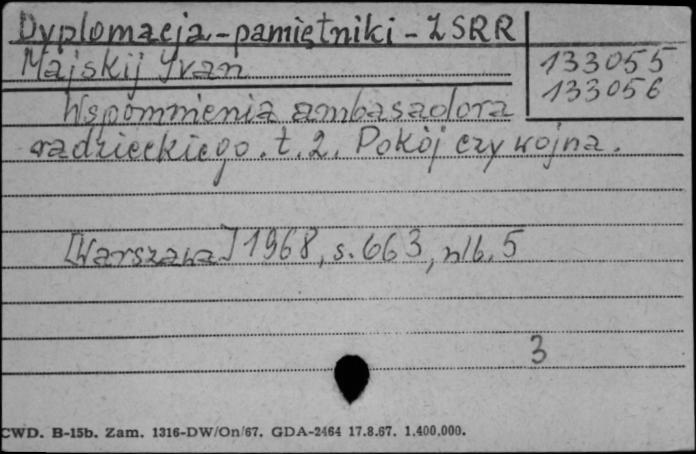 Dyplomacja - pamiętniki - ZSRR
Majskij Ivan
133055
133056
Wspomnienia ambasadora
radzieckiego. t. 2. Pokój czy wojna.
[Warszawa] 1968, s. 663, nlb. 5
3
CWD. B-15b. Zam. 1316-DW/On/67. GDA-2464 17.8.67. 1.400.000.